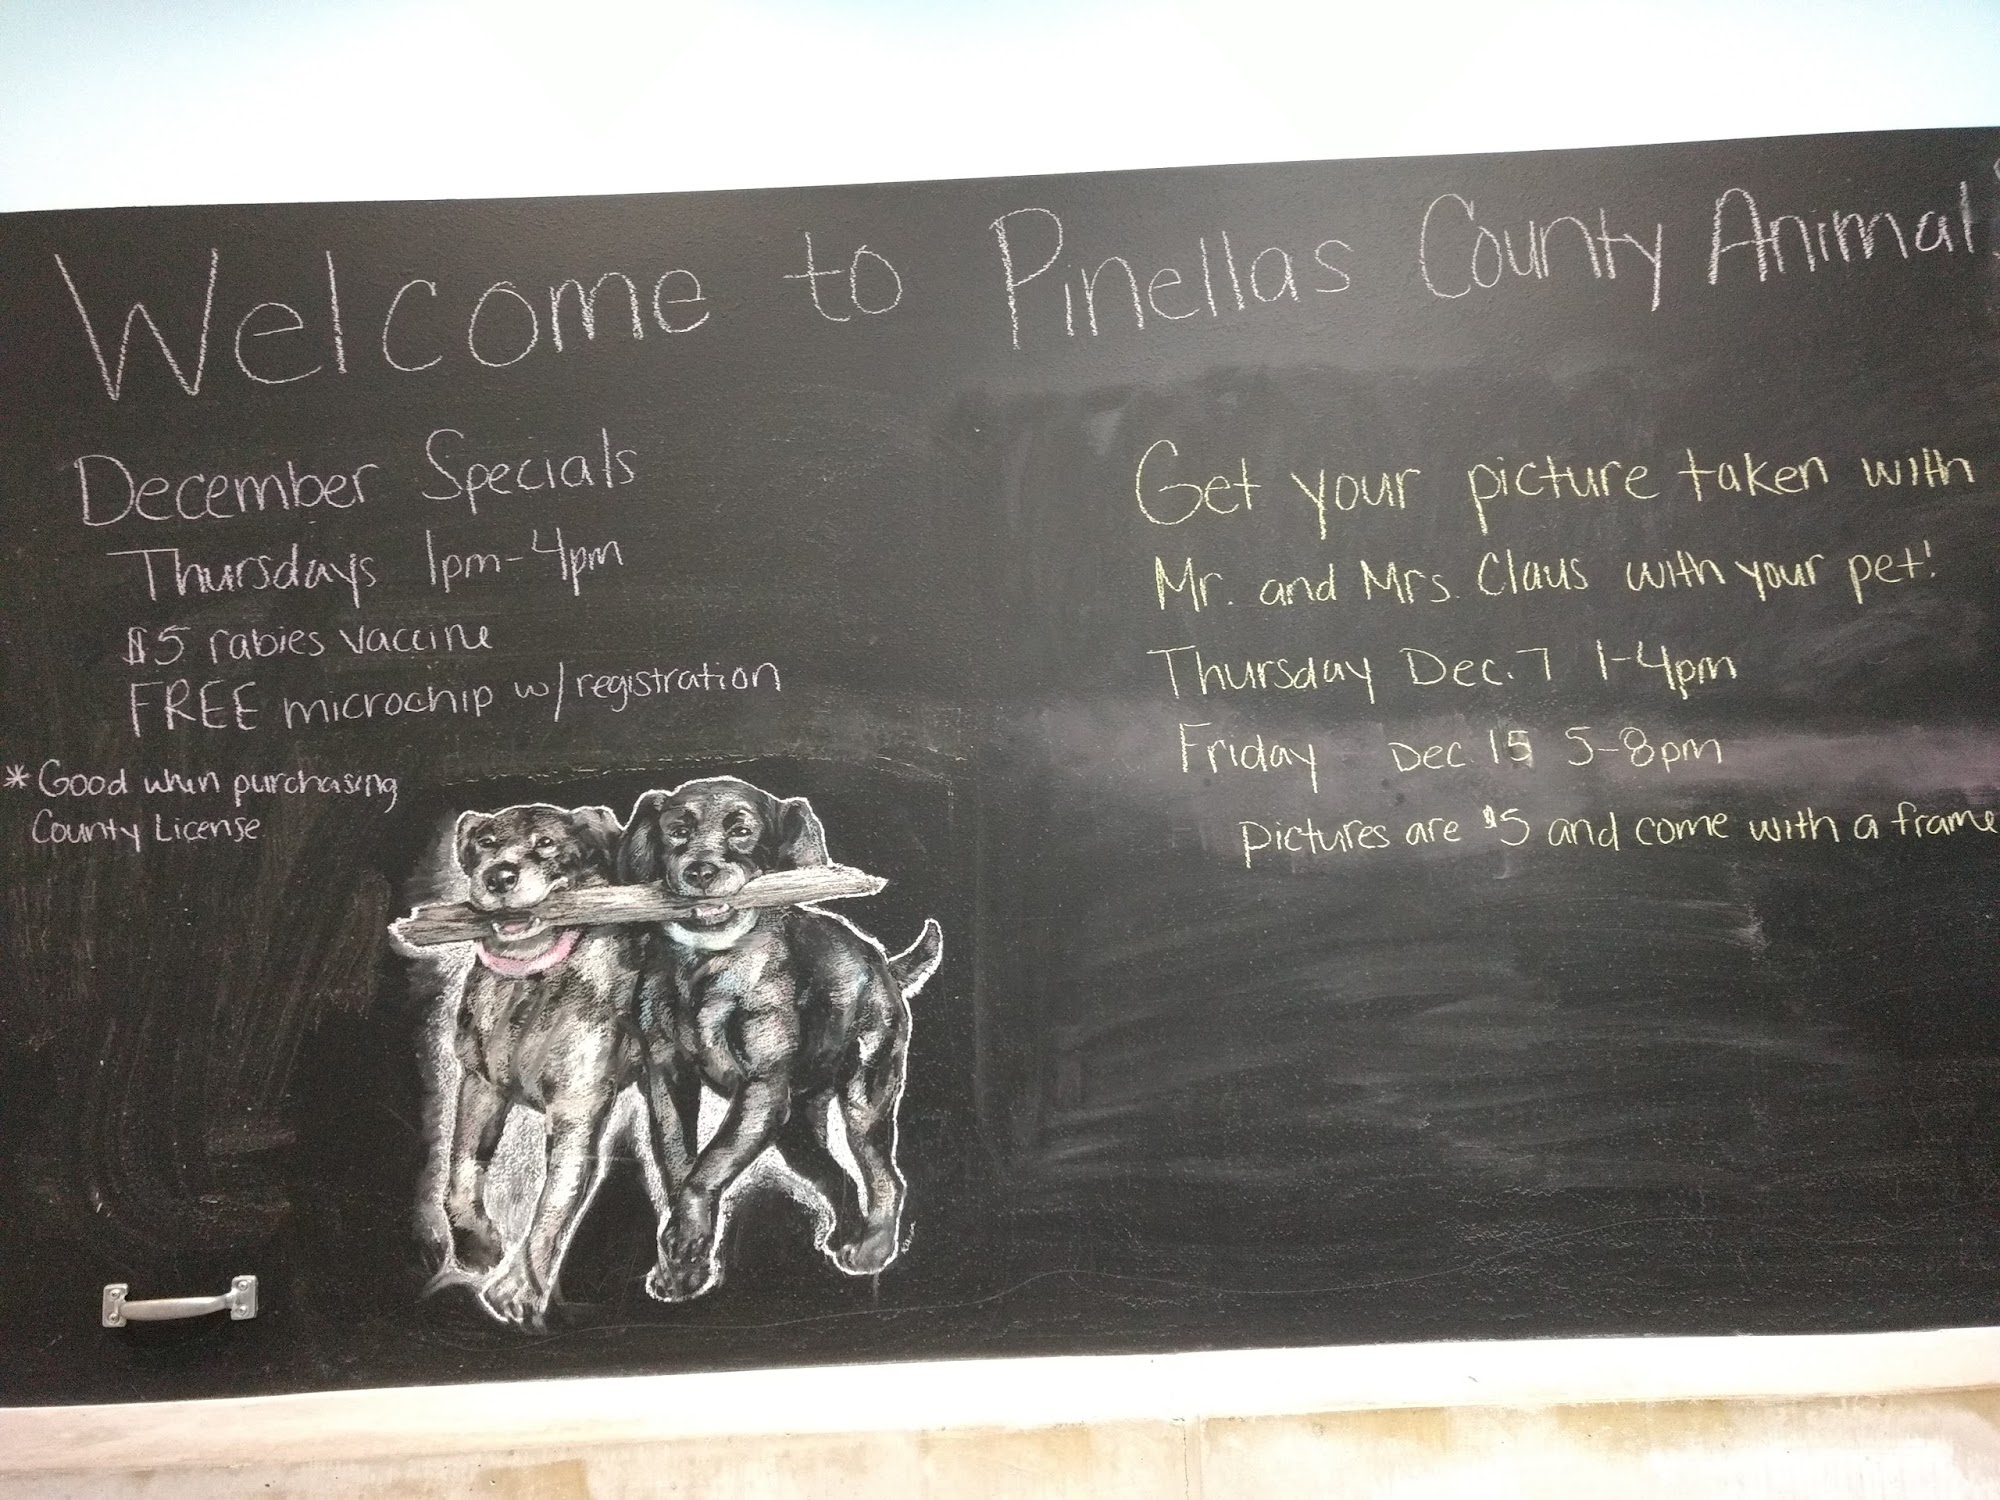 Welcome to Pinellas County Animal
December Specials
Thursdays 1pm-4pm
$5 rabies vaccine
FREE microchip w/registration
* Good when purchasing
County License
Get your picture taken with
Mr. and Mrs. Claus with your pet!
Thursday Dec. 7 1-4pm
Friday Dec. 15 5-8pm
Pictures are $5 and come with a frame